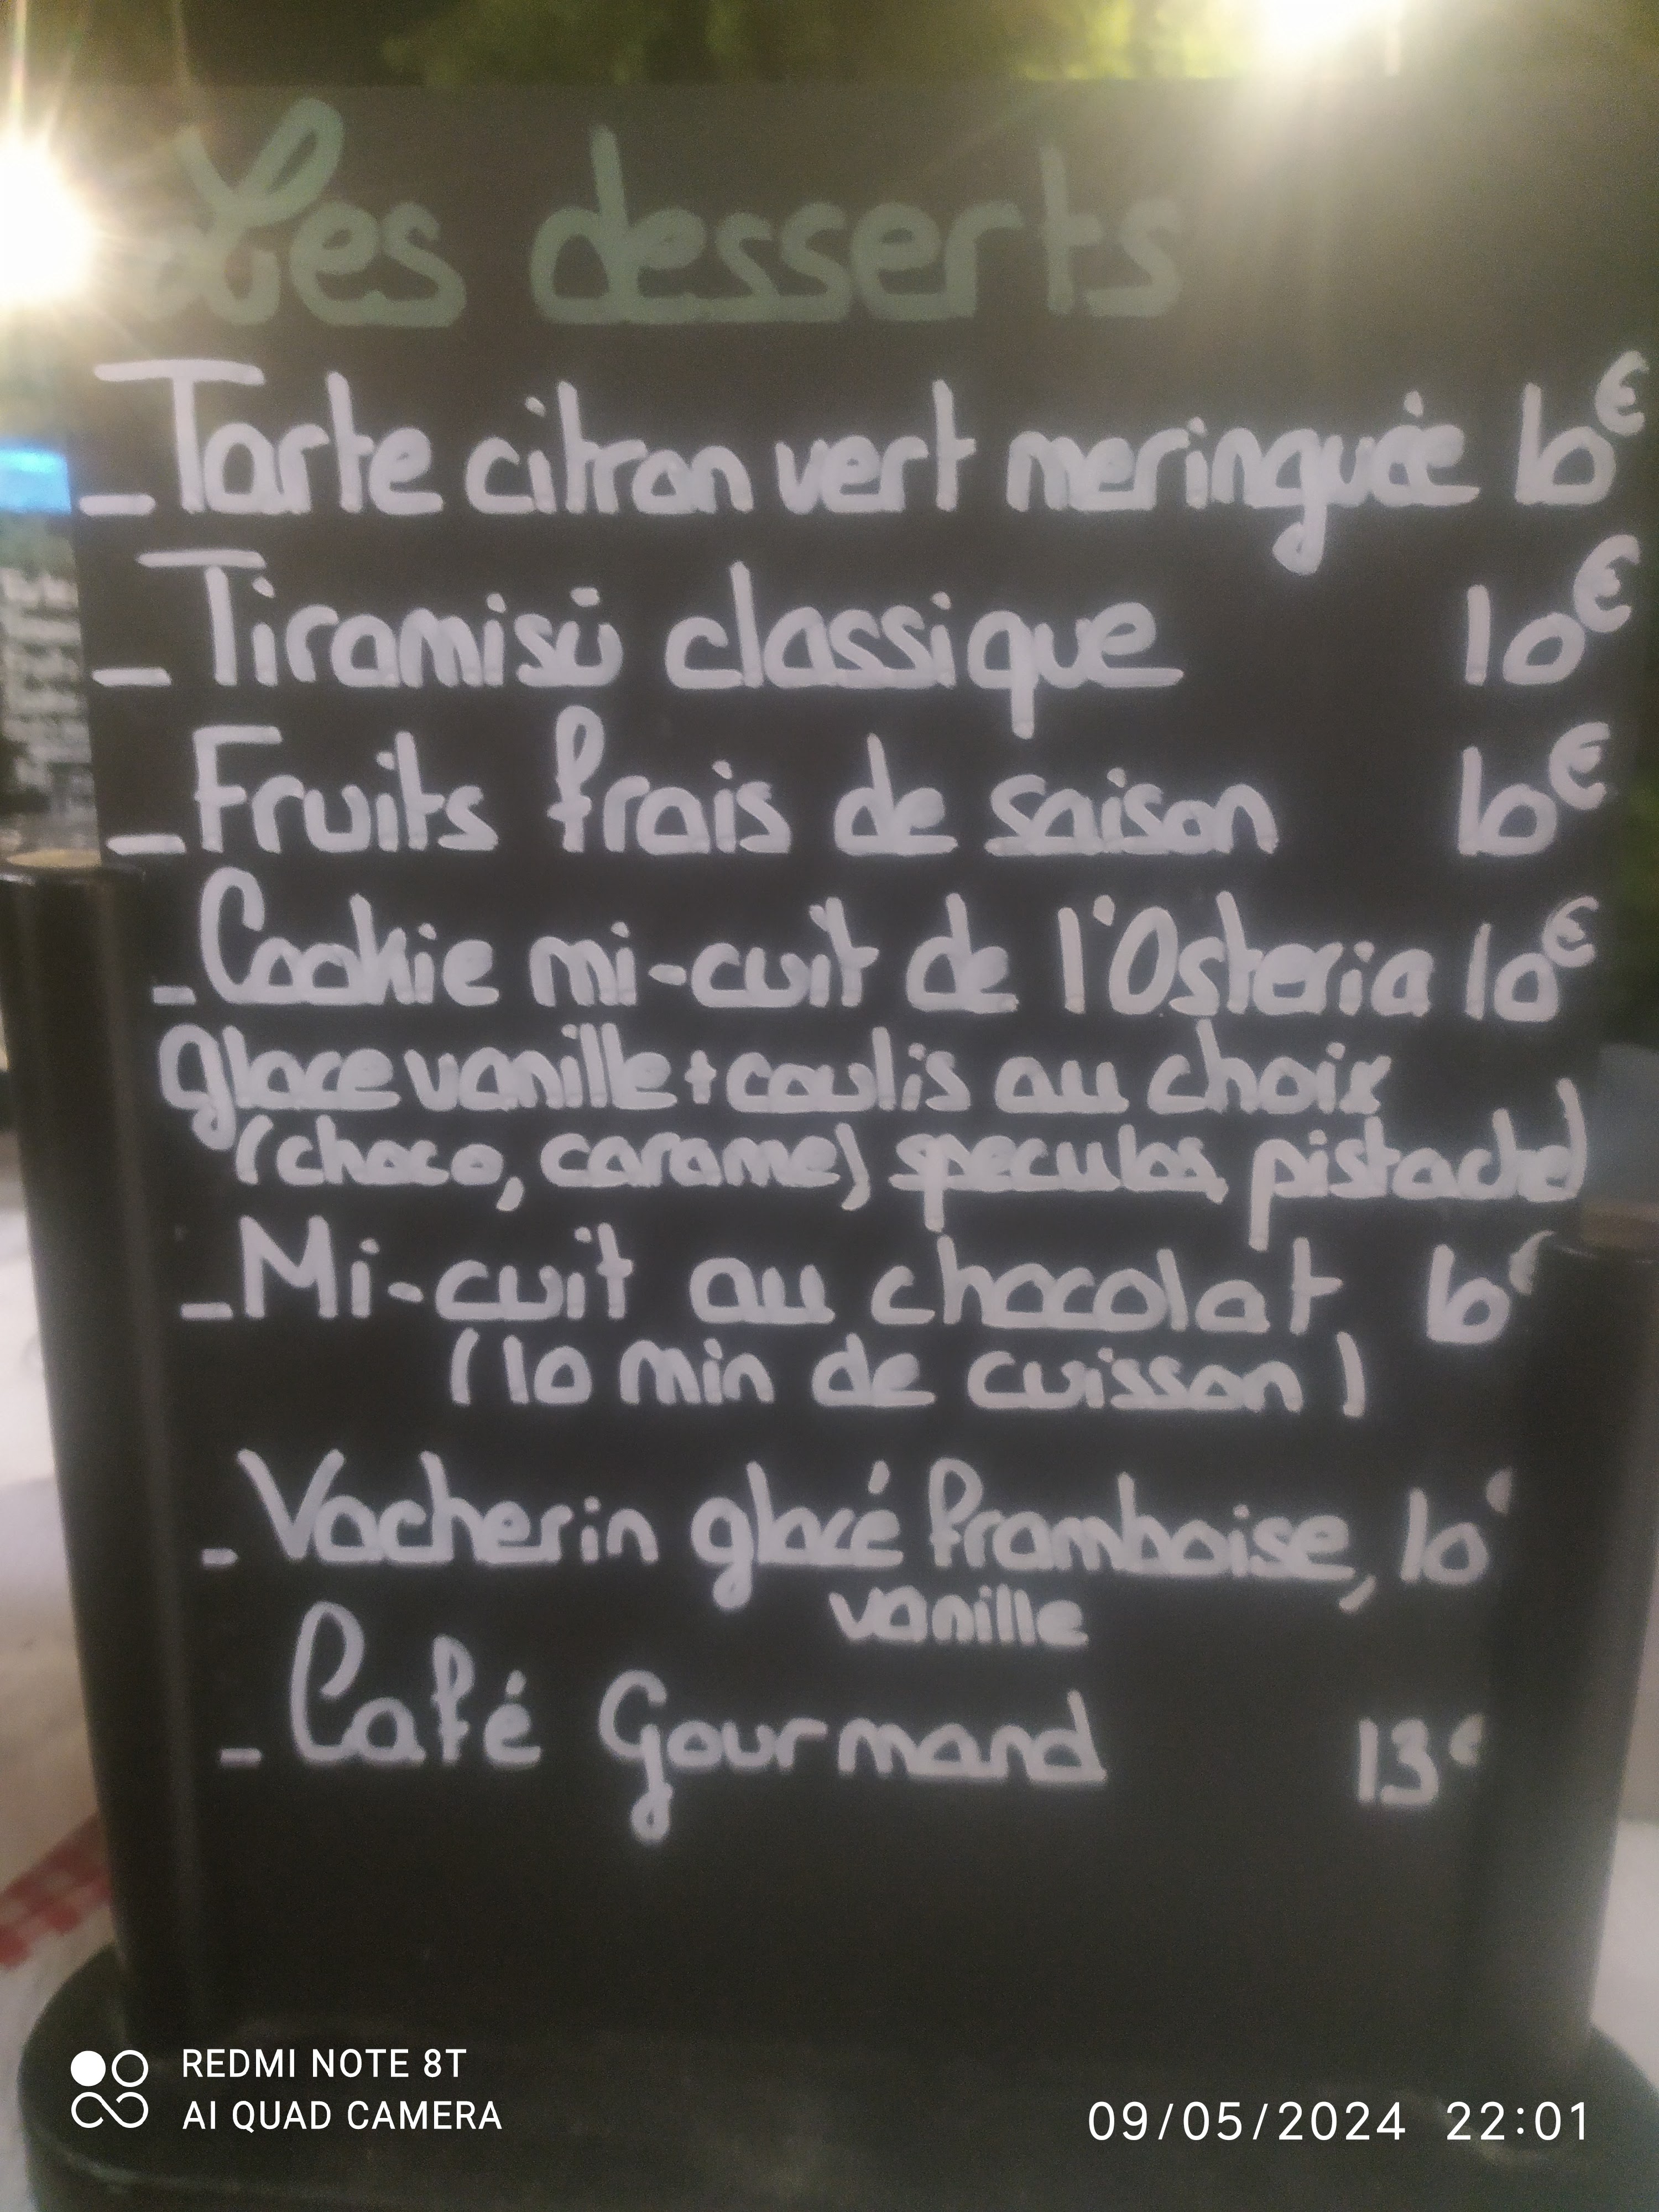 Les desserts
_Tarte citron vert meringuée 10€
_Tiramisù classique 10€
_Fruits frais de saison 10€
_Cookie mi-cuit de l'Osteria 10€
Glace vanille + coulis au choix
(choco, caramel, speculos, pistache)
_Mi-cuit au chocolat 10€
(10 min de cuisson)
_Vacherin glacé framboise, 10€
vanille
_Café Gourmand 13€
REDMI NOTE 8T
AI QUAD CAMERA
09/05/2024 22:01